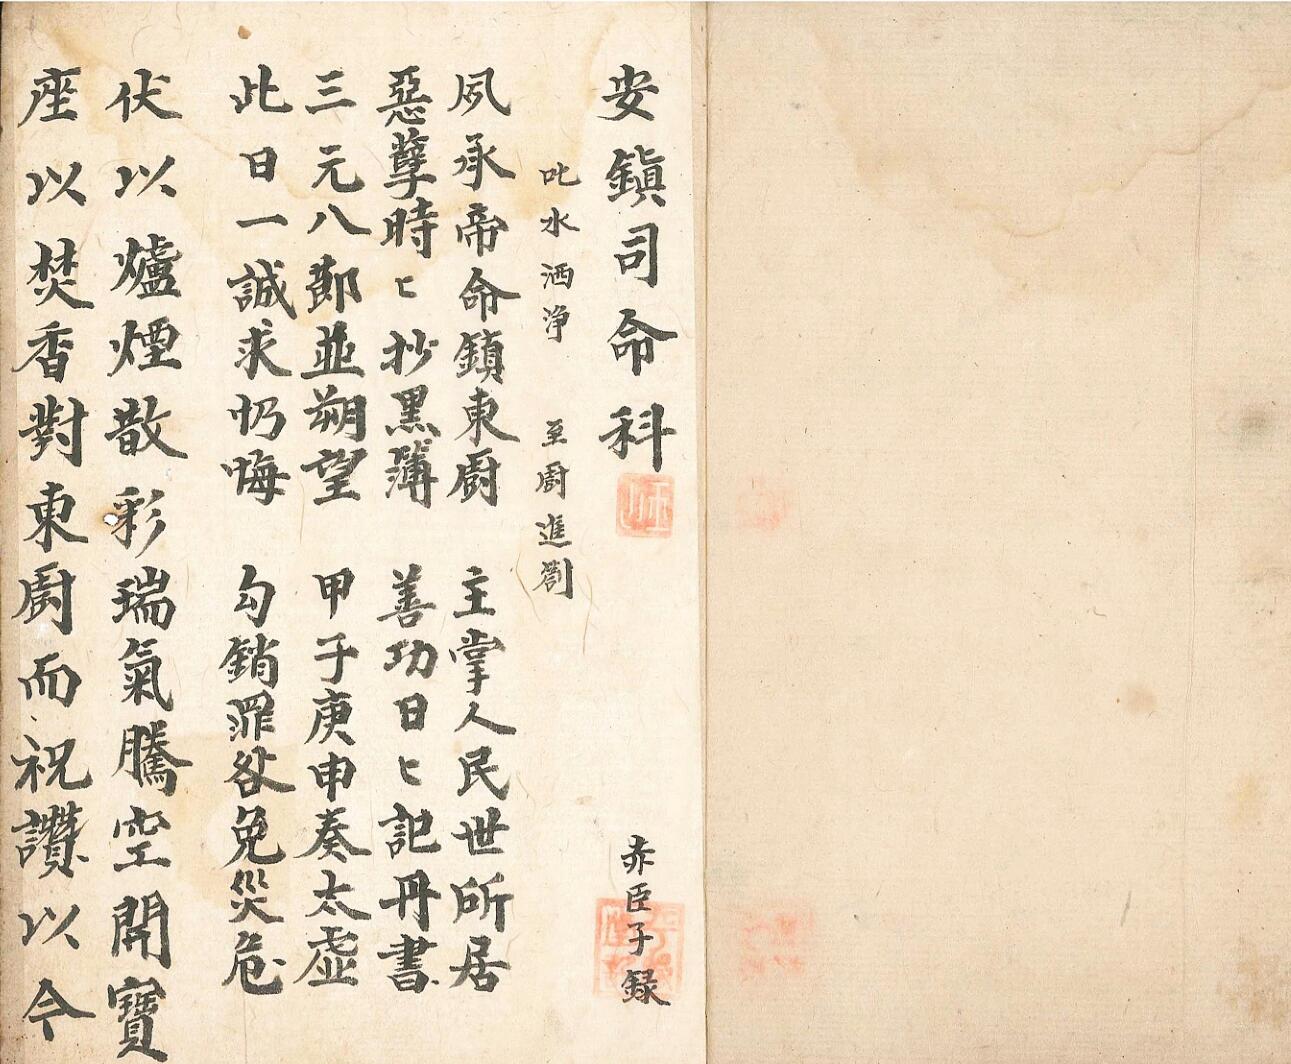 安鎮司命科
赤臣子録
叱水洒净　至廚進劄
夙承帝命鎮東廚　主掌人民世所居
惡孽時〻抄黑簿　善功日〻記丹書
三元八節並朔望　甲子庚申奏太虛
此日一誠求忏悔　勾銷罪咎免災危
伏以爐煙散彩瑞氣騰空開寶
座以焚香對東廚而祝讚以今